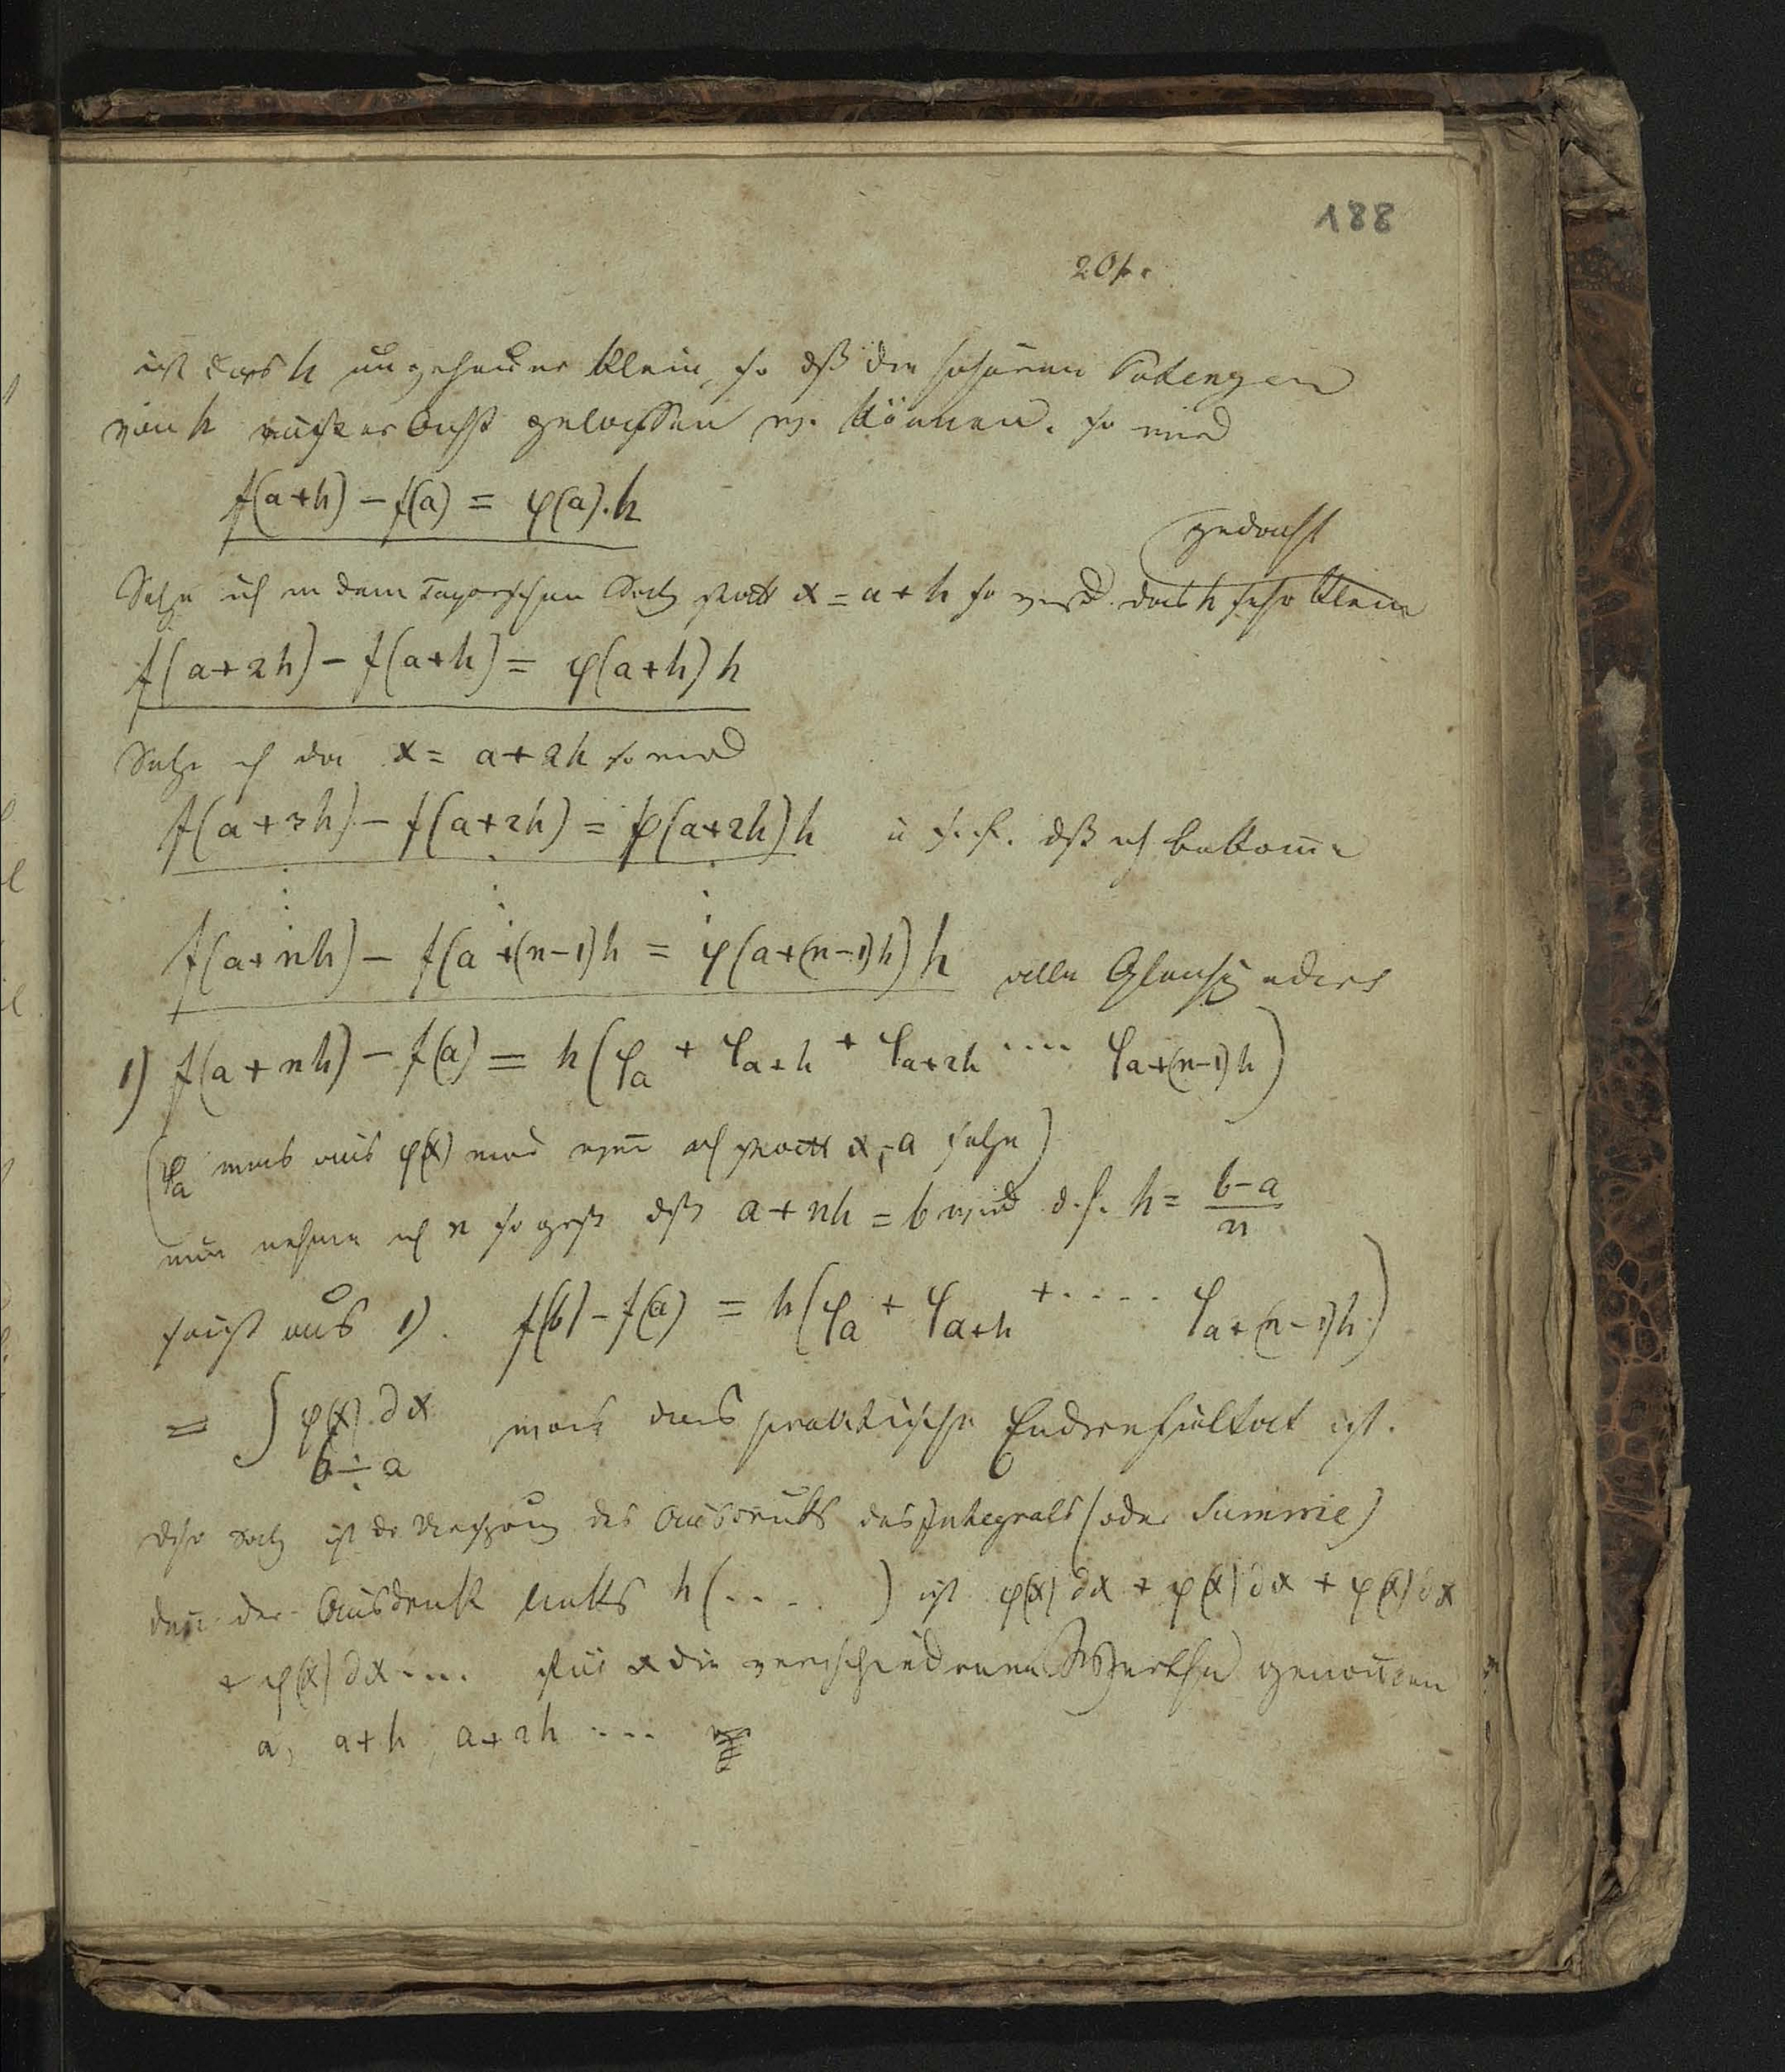 188
20
ist das h ungeheuer klein, so dß die höheren Potenzen
von h außer Acht gelassen w. können. so wird
f(a+h) − f(a) = φ(a).h
gedacht
Setze ich in dem Taylorschen Satz statt x = a+h so wird das h sehr klein
f(a+2h) − f(a+h) = φ(a+h)h
Setze ich da x = a+2h so wird
f(a+3h) − f(a+2h) = φ(a+2h)h u. s. f. dß ich bekomme
f(a+nh) − f(a+(n−1)h = φ(a+(n−1)h)h alle Gleichg addirt
1) f(a+nh) − f(a) = h(φa + φa+h + φa+2h .... φa+(n−1)h)
(φa was aus φ(x) wird wenn ich statt x, a setze)
nun nehme ich n so groß dß a+nh = b wird d. h. h = b−a/n
folgt aus 1). f(b) − f(a) = h(φa + φa+h + ..... φa+(n−1)h)
= ∫φ(x).dx b÷a was das praktische Endresultat ist.
Satz ist der des Ausdruks des Integrals (oder Summie)
den der Ausdruk links h(.... ) ist φ(x)dx + φ(x)dx + φ(x)dx
+ φ(x)dx .... für x die verschiedenen Werthe genomen
a, a+h, a+2h ...